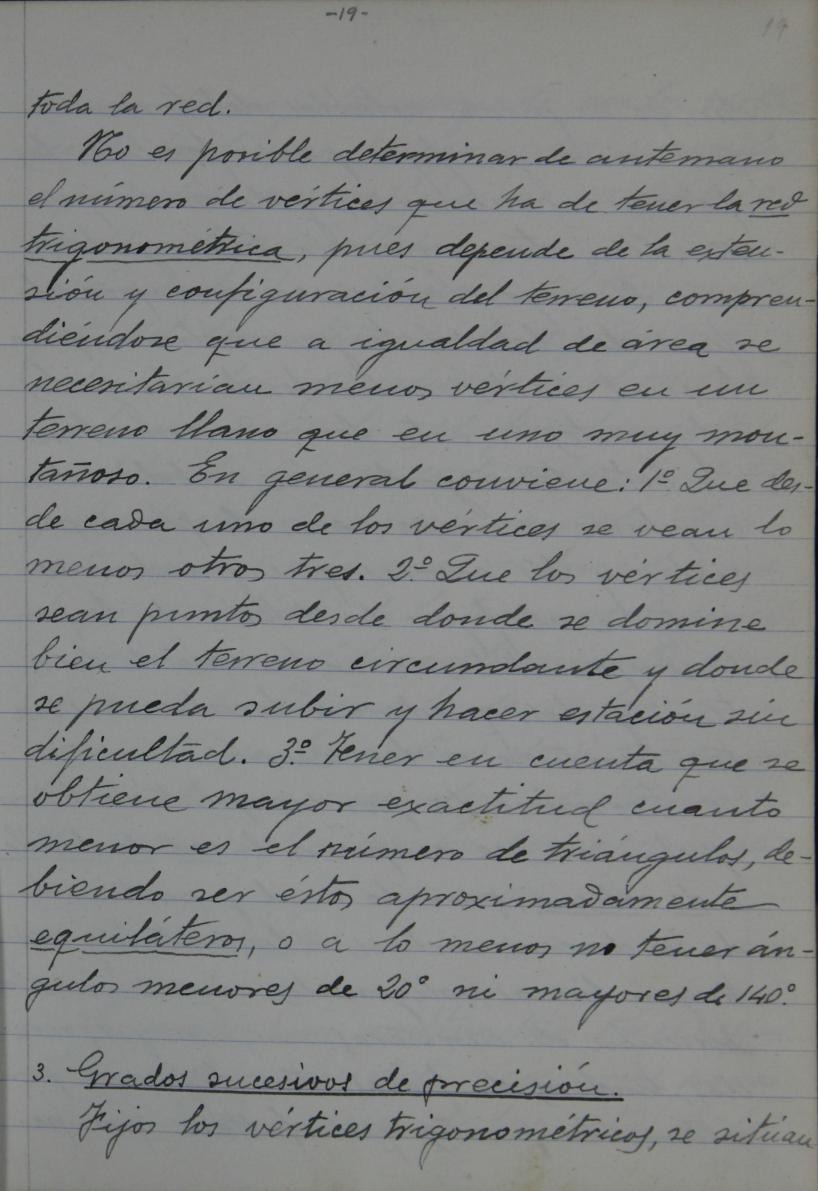 -19-
19
toda la red.
No es posible determinar de antemano
el número de vértices que ha de tener la red
trigonométrica, pues depende de la exten-
sión y configuración del terreno, compren-
diéndose que a igualdad de área se
necesitarían menos vértices en un
terreno llano que en uno muy mon-
tañoso. En general conviene: 1º Que des-
de cada uno de los vértices se vean lo
menos otros tres. 2º Que los vértices
sean puntos desde donde se domine
bien el terreno circundante y donde
se pueda subir y hacer estación sin
dificultad. 3º Tener en cuenta que se
obtiene mayor exactitud cuanto
menor es el número de triángulos, de-
biendo ser éstos aproximadamente
equiláteros, o a lo menos no tener án-
gulos menores de 20° ni mayores de 140°.
3. Grados sucesivos de precisión.
Fijos los vértices trigonométricos, se sitúan